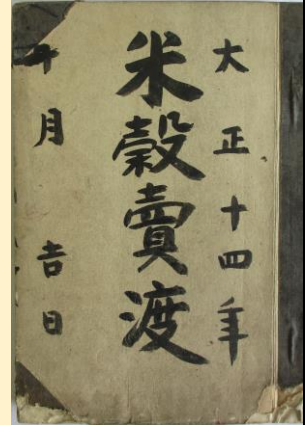 大正十四年
米穀賣渡
十月吉日